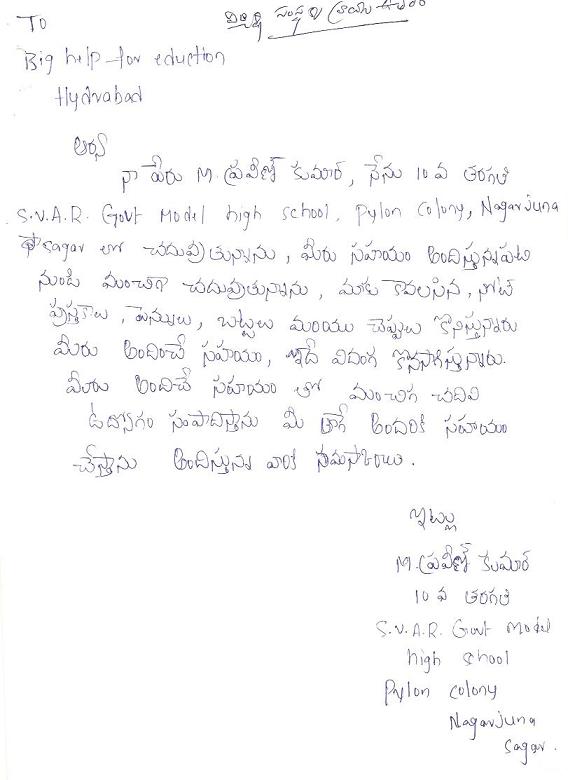 సంస్థకు వ్రాయు ఉత్తరం
TO
Big help for eduction
Hydrabad
ఆర్య
నా పేరు M. ప్రవీణ్ కుమార్, నేను 10 వ తరగతి
S.V.A.R. Govt Model high school, Pylon colony, Nagarjuna
sagar లో చదువుతున్నాను, మీరు సహయం అందిస్తున్నపటి
నుండి మంచిగా చదువుతున్నాను, మాకు కావలసిన, నోట్
పుస్తకాలు, పెన్నులు, బట్టలు మరియు చెప్పులు కొనిస్తున్నారు
మీరు అందించే సహయం, ఇదే విదంగ కొనసాగిస్తున్నారు.
మీరు అందిచే సహయం తో మంచిగ చదివి
ఉదోగం సంపాదిస్తాను మీ లాగే అందరికి సహయం
చేస్తాను అందిస్తున్న వారికి నమస్కారాలు.
ఇట్లు
M. ప్రవీణ్ కుమార్
10 వ తరగతి
S.V.A.R. Govt Model
high school
Pylon colony
Nagarjuna
sagar.